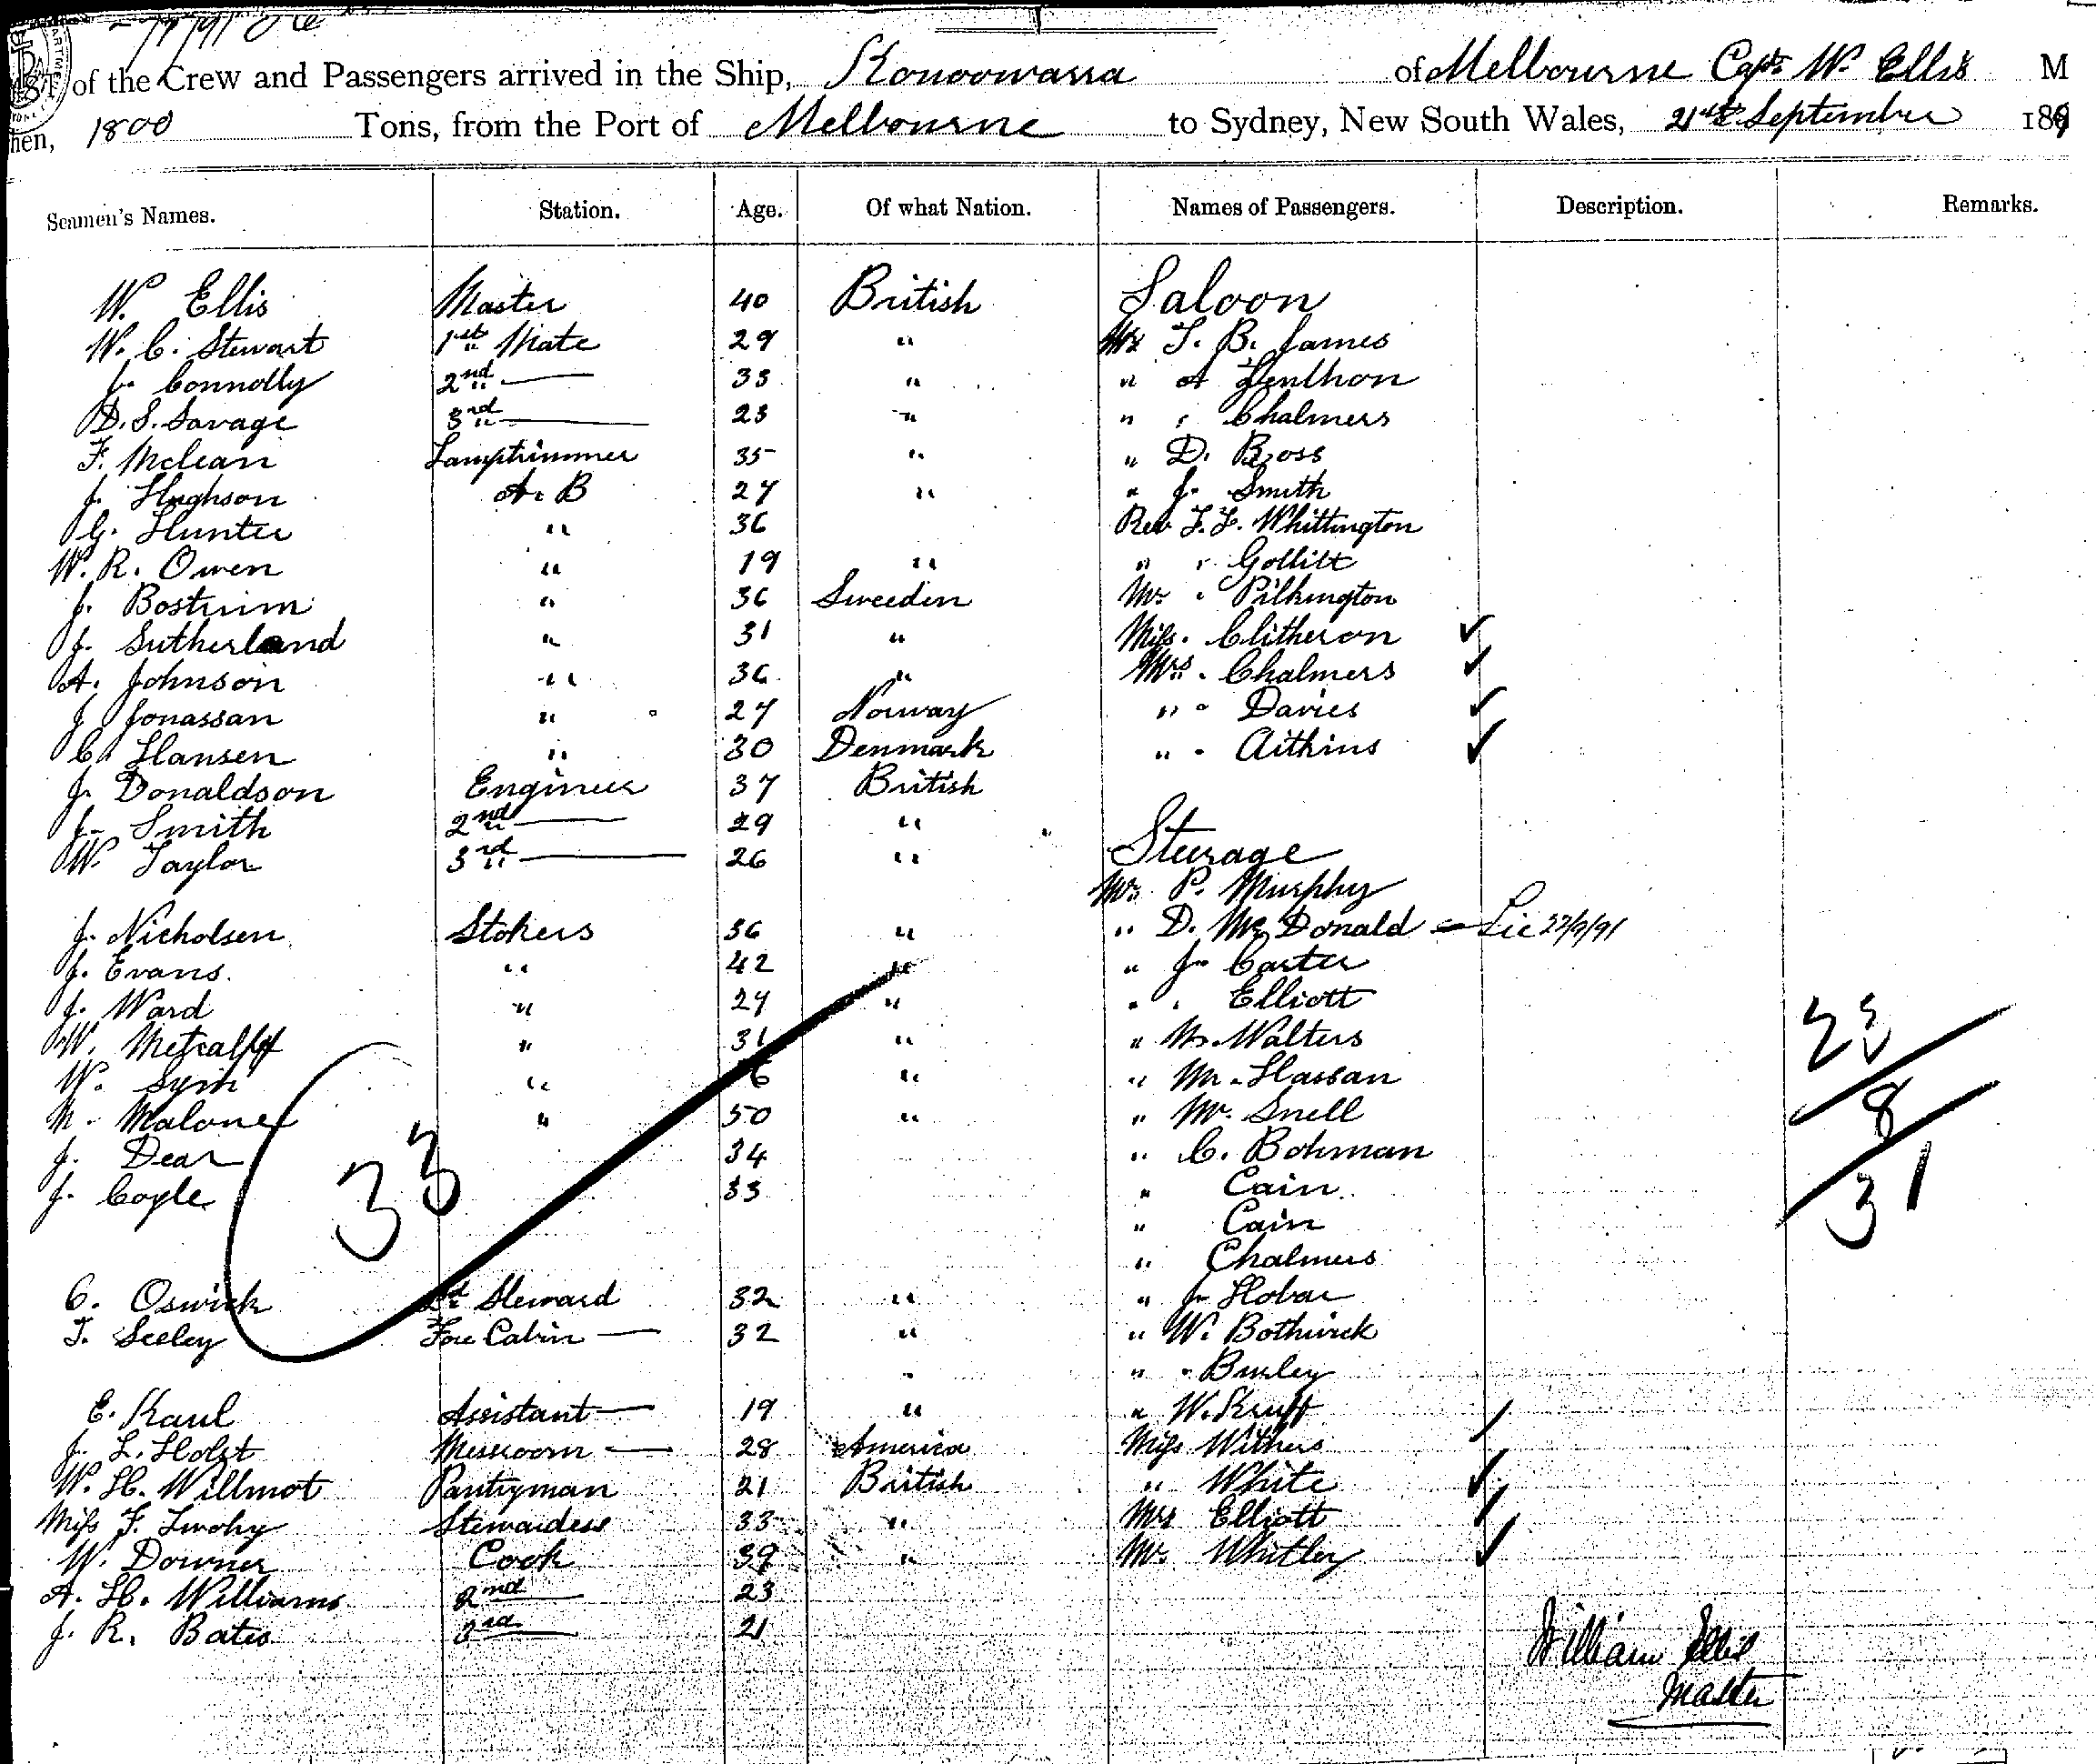 of the Crew and Passengers arrived in the Ship, Konoowarra of Melbourne Capt. W. Ellis M
1800 Tons, from the Port of Melbourne to Sydney, New South Wales, 21st September 189
Seamen's Names. Station. Age. Of what Nation. Names of Passengers. Description. Remarks.
W. Ellis Master 40 British Saloon
W. C. Stewart 1st Mate 29 " Mr T. B. James
J. Connolly 2nd — 33 " " A
D. S. Savage 3rd — 23 " " " Chalmers
F. McLean Lamptrimmer 35 " " D. Ross
J. Hughson A. B 27 " " J. Smith
G. Hunter " 36 Rev F. F. Whittington
W. R. Owen " 19 " " "
J. Bostrim " 36 Sweeden Mr. " Pilkington
J. Sutherland " 31 " Miss. Clitheron ✓
A. Johnson " 36 " Mrs. Chalmers ✓
J Jonassan " 27 Norway " " Davies ✓
C. Hansen " 30 Denmark " " Aitkins ✓
J. Donaldson Engineer 37 British
J. Smith 2nd — 29 "
W. Taylor 3rd — 26 " Steerage
Mr. P. Murphy
J. Nicholsen Stokers 36 " " D. McDonald - Lic 22/9/91
J. Evans. " 42 " " J. Carter
J. Ward " 27 " " " Elliott
W. Metcalf " 31 " " M. Walters
W. " 6 " " M. Hassan
M. Malone " 50 " " W. Snell
J. Dear 34 " C. Bohman
J. Coyle 33 " Cain
" Cain
" Chalmers
C. Oswick Steward 32 " " J. Hobar
T. Seeley Fore Cabin — 32 " " W. Bothwick
" " " Burley
E. Kaul Assistant — 19 " " W. Kruff
J. L. Holst Messroom — 28 America Miss Withers
W. H. Willmot Pantryman 21 British " White ✓
Miss F. Stewardess 33 " Mrs Elliott ✓
W. Downer Cook 39 " Mrs Whitley ✓
A. H. Williams 2nd — 23
J. R. Bates 3rd — 21
33
23
8
31
William Ellis
Master